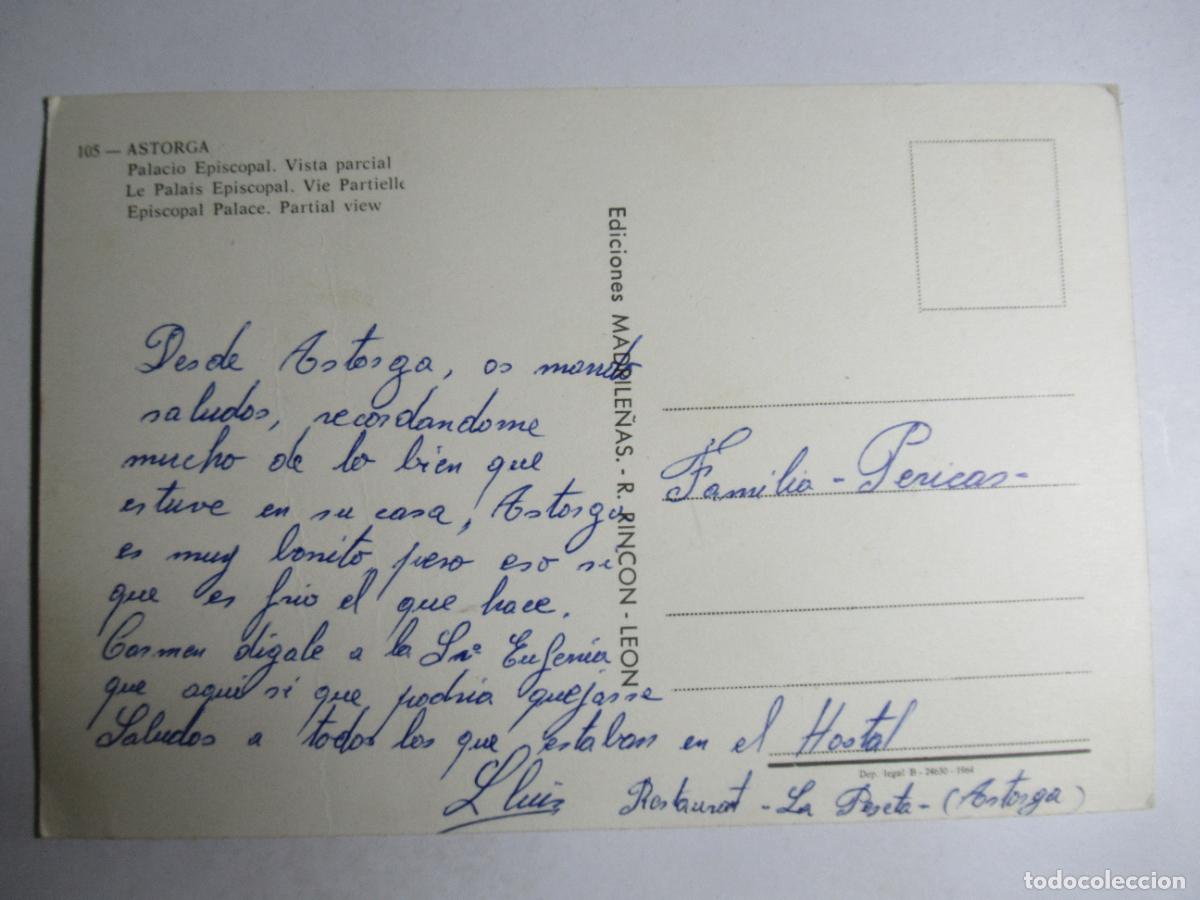 105 — ASTORGA
Palacio Episcopal. Vista parcial
Le Palais Episcopal. Vie Partielle
Episcopal Palace. Partial view
Desde Astorga, os mando
saludos, recordandome
mucho de lo bien que
estuve en su casa, Astorga
es muy bonito pero eso si
que es frio el que hace.
Carmen digale a la Sñª Eugenia
que aqui si que podria quejarse
Saludos a todos los que estaban en el Hostal
Lluis
Restaurat - La Peseta - (Astorga)
Ediciones MADRILEÑAS. - R. RINCON - LEON
Familia - Pericas -
Dep. legal B - 24630 - 1964
todocoleccion